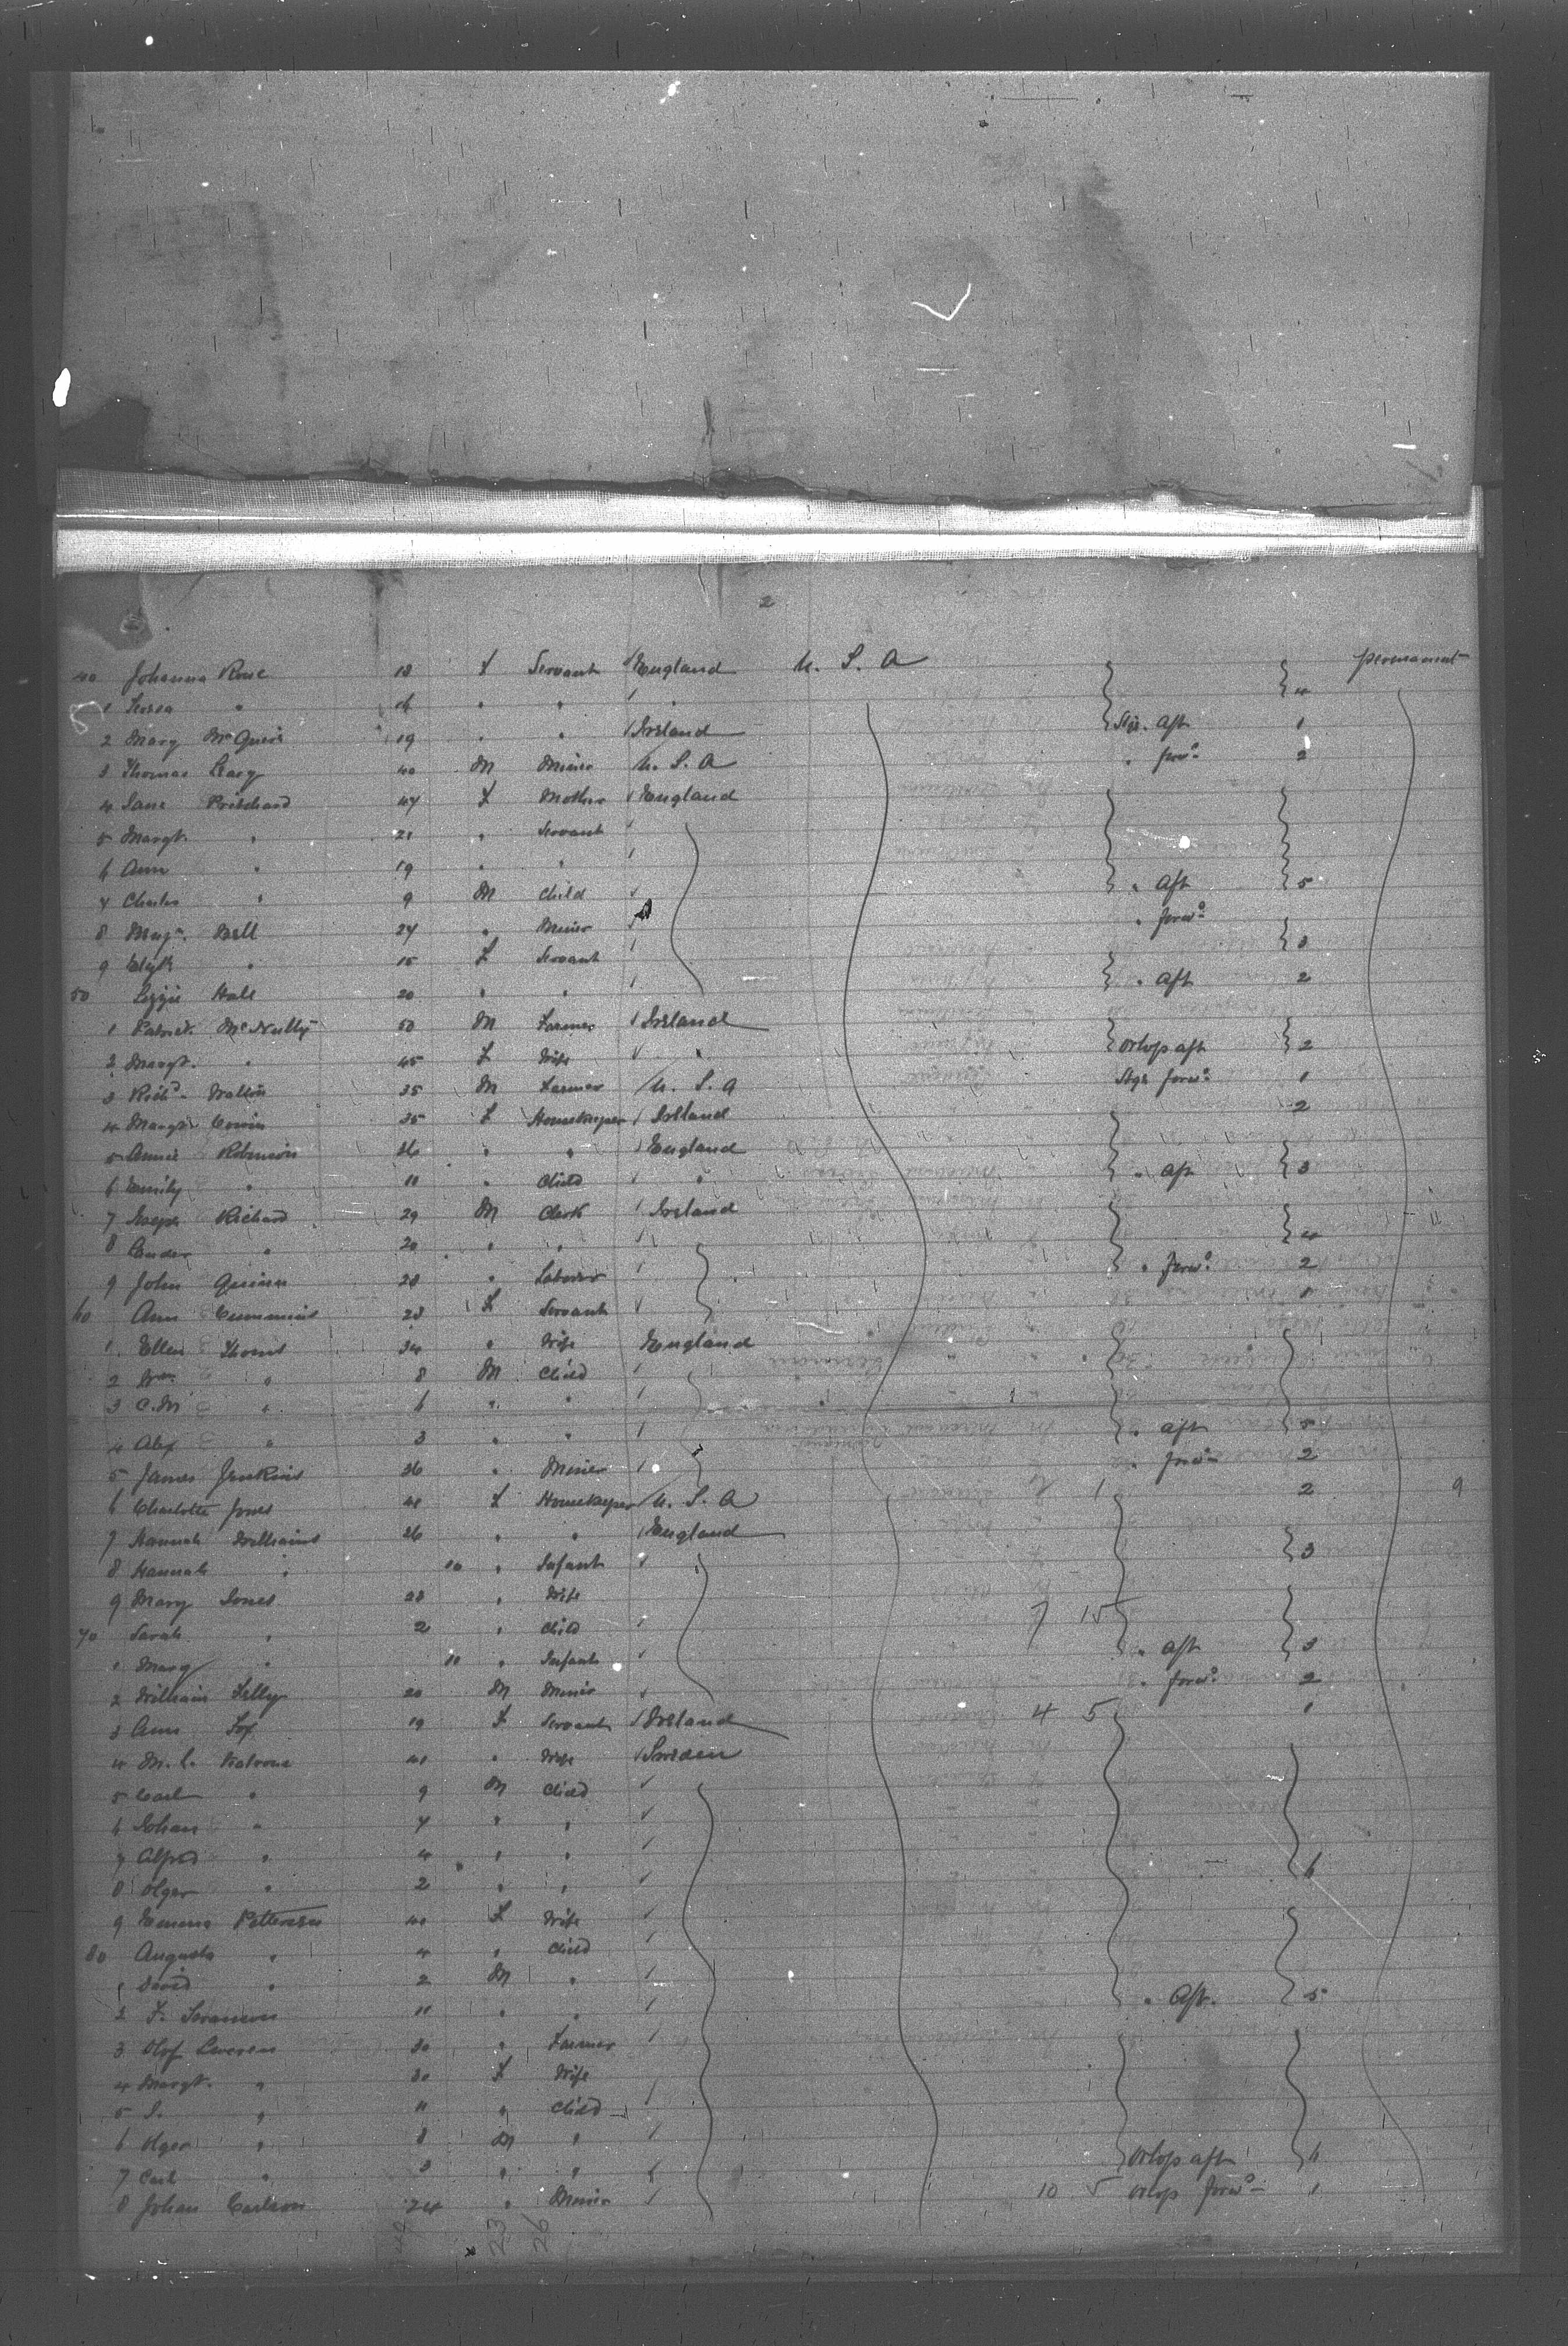 2
40 Johanna Rowe 18 F Servant England U. S. A permanent
1 " 16 " " " 4
2 Mary McGuire 19 " " Ireland Stge. Aft 1
3 Thomas Leary 40 M Miner U. S. A " forwd 2
4 Jane Pritchard 47 F Mother England
5 Margt. " 21 " Servant
6 Ann " 19 " "
7 Charles " 9 M Child " Aft 5
8 Bell 24 " Miner " forwd
9 " 15 F Servant 3
50 Lizzie Hall 20 " " " Aft 2
1 Patrick McNulty 50 M Farmer Ireland
2 Margt. " 45 F Wife " Orlop aft 2
3 Richd 35 M Farmer U. S. A Stge forwd 1
4 Margt 35 F Housekeeper Ireland 2
5 Annie Robinson 36 " " England
6 Emily " 11 " Child " " Aft 3
7 Joseph Richard 29 M Clerk Ireland
8 " 20 " " 4
9 John Quinn 28 " Laborer " forwd 2
60 Ann Cummins 23 F Servant 1
1 Ellen Thomas 34 " Wife England
2 Wm. " 8 M Child
3 C. M " 6 " "
4 Alex " 3 " " " aft 5
5 James Jenkins 36 " Miner " forwd 2
6 Charlotte Jones 41 F Housekeeper U. S. A 1 2 9
7 Hannah Williams 26 " " England
8 Hannah " 10 " Infant 3
9 Mary Jones 28 " Wife
70 Sarah " 2 " Child 7 15
1 Mary " 11 " Infant " aft 3
2 William Lilly 20 M Miner " forwd 2
3 Ann Fox 19 F Servant Ireland 4 5 1
4 M. C. 41 " Wife Sweden
5 Carl " 9 M Child
6 Johan " 7 " "
7 Alfred " 4 " "
8 Olger " 2 " " 6
9 Emma Petterson 40 F Wife
80 Augusta " 4 " Child
1 David " 2 M "
2 F. Swanson 11 " " " Aft. 5
3 Olof 30 " Farmer
4 Margt. " 30 F Wife
5 S. " 11 " Child
6 Olger " 8 M "
7 Carl " 3 " " Orlop aft 6
8 Johan Carlson 24 " Miner 10 5 Orlop forwd 1
23 26